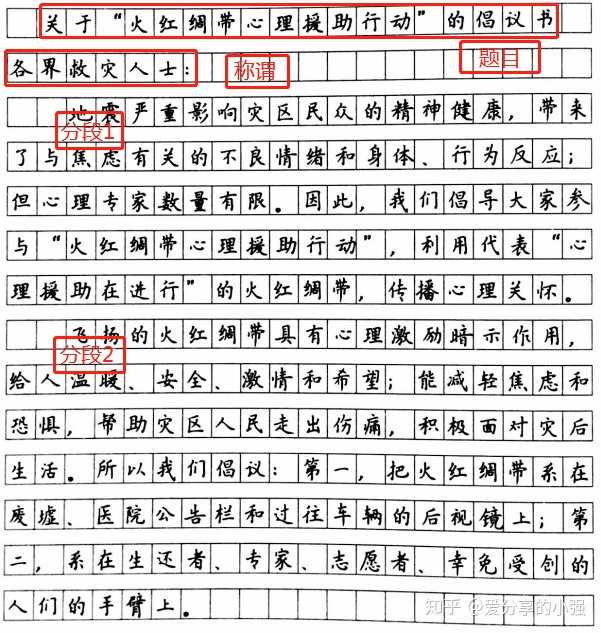 关于“火红绸带心理援助行动”的倡议书
题目
各界救灾人士：
称谓
地震严重影响灾区民众的精神健康，带来
分段1
了与焦虑有关的不良情绪和身体、行为反应；
但心理专家数量有限。因此，我们倡导大家参
与“火红绸带心理援助行动”，利用代表“心
理援助在进行”的火红绸带，传播心理关怀。
飞扬的火红绸带具有心理激励暗示作用，
分段2
给人温暖、安全、激情和希望；能减轻焦虑和
恐惧，帮助灾区人民走出伤痛，积极面对灾后
生活。所以我们倡议：第一，把火红绸带系在
废墟、医院公告栏和过往车辆的后视镜上；第
二，系在生还者、专家、志愿者、幸免受创的
人们的手臂上。
知乎 @爱分享的小强